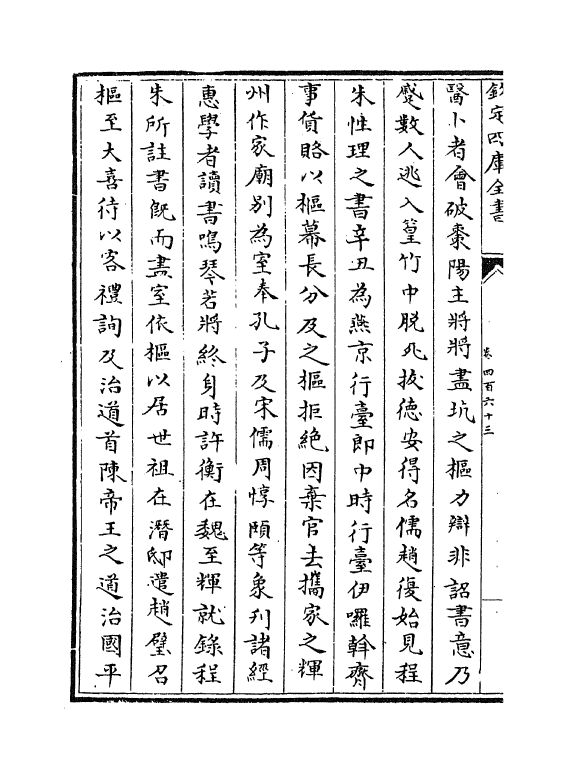 欽定四庫全書
卷四百六十三
醫卜者會破棗陽主將將盡坑之樞力辯非詔書意乃
蹙數人逃入篁竹中脫死拔德安得名儒趙復始見程
朱性理之書辛丑為燕京行臺郎中時行臺伊囉斡齊
事貨賂以樞幕長分及之樞拒絶因棄官去攜家之輝
州作家廟别為室奉孔子及宋儒周惇頤等象刋諸經
惠學者讀書鳴琴若將終身時許衡在魏至輝就錄程
朱所註書旣而盡室依樞以居世祖在潛邸遣趙璧召
樞至大喜待以客禮詢及治道首陳帝王之道治國平